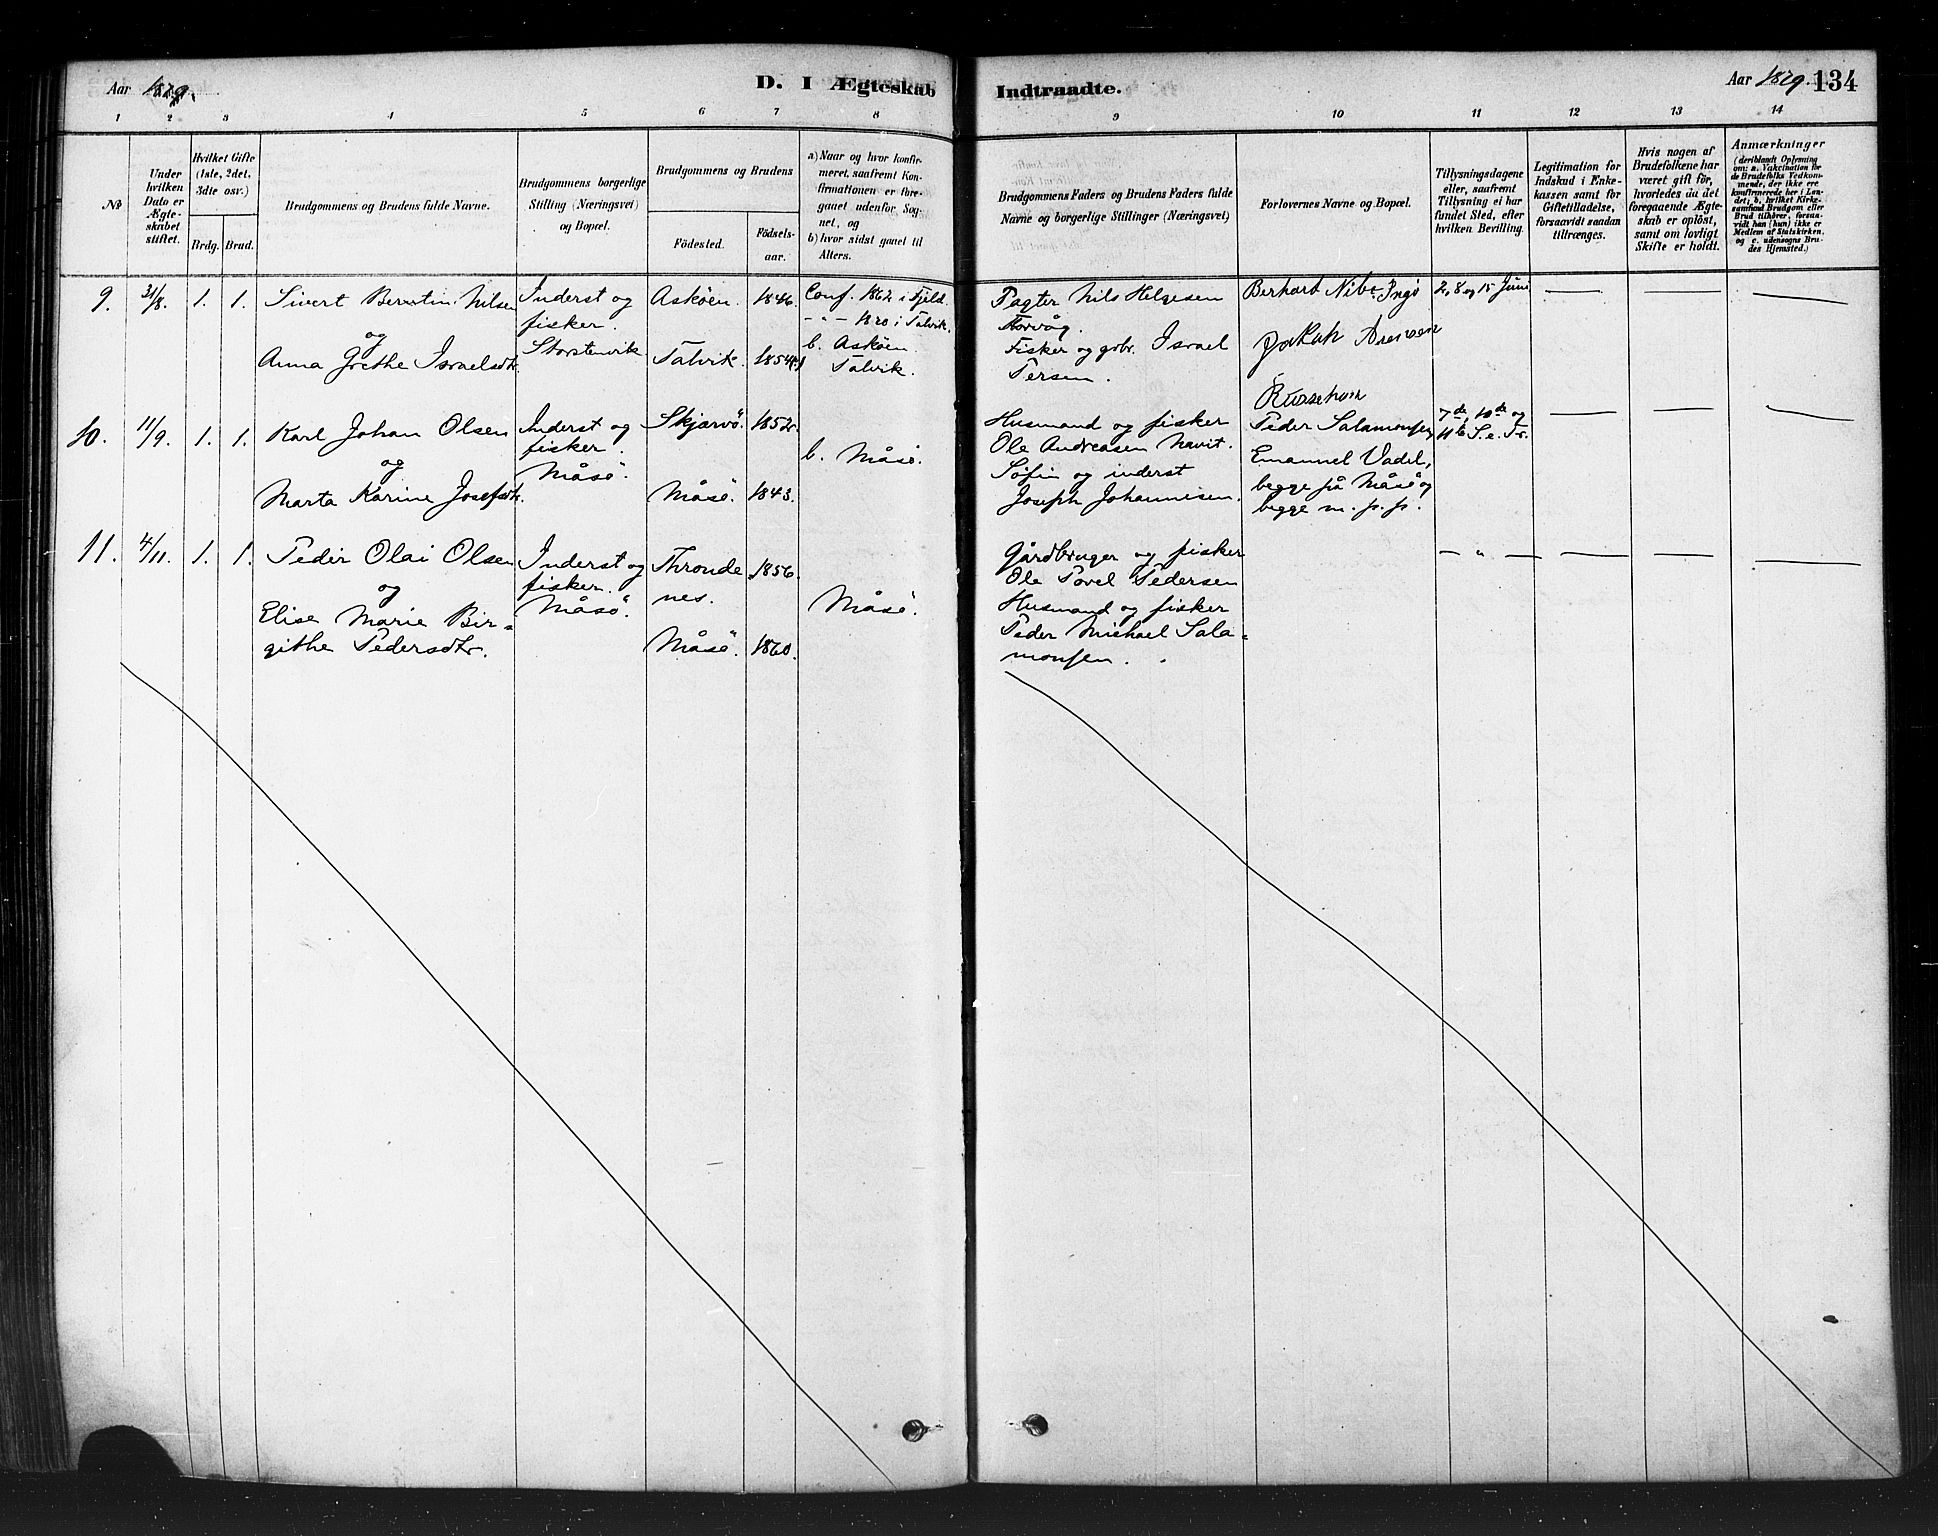 Aar 1879.
D. I Ægteskab
Indtraadte.
Aar 1879. 134
1 2 3 4 5 6 7 8
9 10 11 12 13 14
No
Under
hvilken
Dato er
Ægte-
skabet
stiftet.
Hvilket Gifte
(1ste, 2det,
3dte osv.)
Brdg. Brud.
Brudgommens og Brudens fulde Navne.
Brudgommens borgerlige
Stilling (Næringsvei)
og Bopæl.
Brudgommens og Brudens
Fødested.
Fødsels-
aar.
a) Naar og hvor konfir-
meret, saafremt Kon-
firmationen er fore-
gaaet udenfor Sog-
net, og
b) hvor sidst gaaet til
Alters.
Brudgommens Faders og Brudens Faders fulde
Navne og borgerlige Stillinger (Næringsvei)
Forlovernes Navne og Bopæl.
Tillysningsdagene
eller, saafremt
Tillysning ei har
fundet Sted, efter
hvilken Bevilling.
Legitimation for
Indskud i Enke-
kassen samt for
Giftetilladelse,
forsaavidt saadan
tiltrænges.
Hvis nogen af
Brudefolkene har
været gift før,
hvorledes da det
foregaaende Ægte-
skab er opløst,
samt om lovligt
Skifte er holdt.
Anmærkninger
(deriblandt Oplysning
om: a. Vakcination for
de Brudefolks Vedkom-
mende, der ikke ere
konfirmerede her i Lan-
det; b. hvilket Kirke-
samfund Brudgom eller
Brud tilhører, forsaa-
vidt han (hun) ikke er
Medlem af Statskirken,
og c. udensogns Bru-
des Hjemsted.)
9. 31/8. 1. 1.
Sivert Berntin Nilsen
og
Anna Grethe Israelsdtr.
Inderst og
fisker.
Storstenvik
Askøen. 1846.
Talvik. 1854
Conf. 1862 i Fjeld.
- " - 1870 i Talvik.
b. Askøen.
Talvik.
Pagter Nils Helgesen
Fisker og grbr. Israel
Persen.
Berhard Nibe Ingø
Jakob
2, 8 og 15 Juni
10. 11/9. 1. 1.
Karl Johan Olsen
og
Marta Karine Josefsdtr.
Inderst og
fisker.
Måsö.
Skjærvö. 1852.
Måsö. 1843.
b. Måsö.
Husmand og fisker
Ole Andreasen Navit.
Søfin og inderst
Joseph Johannisen.
Peder Salamonsen
Emanuel Vadel,
begge på Måsö og
begge m. p. p.
7de 10de og
11te S. e. Tr.
11. 4/11. 1. 1.
Peder Olai Olsen
og
Elise Marie Bir=
githe Pedersdtr.
Inderst og
fisker.
Måsö.
Thronde
nes. 1856.
Måsö. 1860.
Måsö.
Gårdbruger og fisker
Ole Povel Pedersen
Husmand og fisker
Peder Michael Sala=
monsen.
— " —